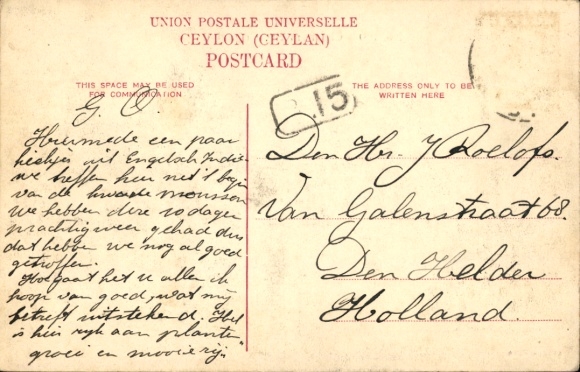 UNION POSTALE UNIVERSELLE
CEYLON (CEYLAN)
POSTCARD
THIS SPACE MAY BE USED
FOR COMMUNICATION
THE ADDRESS ONLY TO BE
WRITTEN HERE
15
G. O.
Hiermede een paar
kiekjes uit Engelsch Indie
we treffen hier net 't begin
van de kwade mousson
we hebben deze 10 dagen
prachtig weer gehad dus
dat hebben we nog al goed
getroffen.
Hoe gaat het u allen ik
hoop van goed, wat mij
betreft uitstekend. Het
is hier rijk aan planten
groei en mooie
Den Hr. J Roelofs.
Van Galenstraat 68.
Den Helder
Holland.